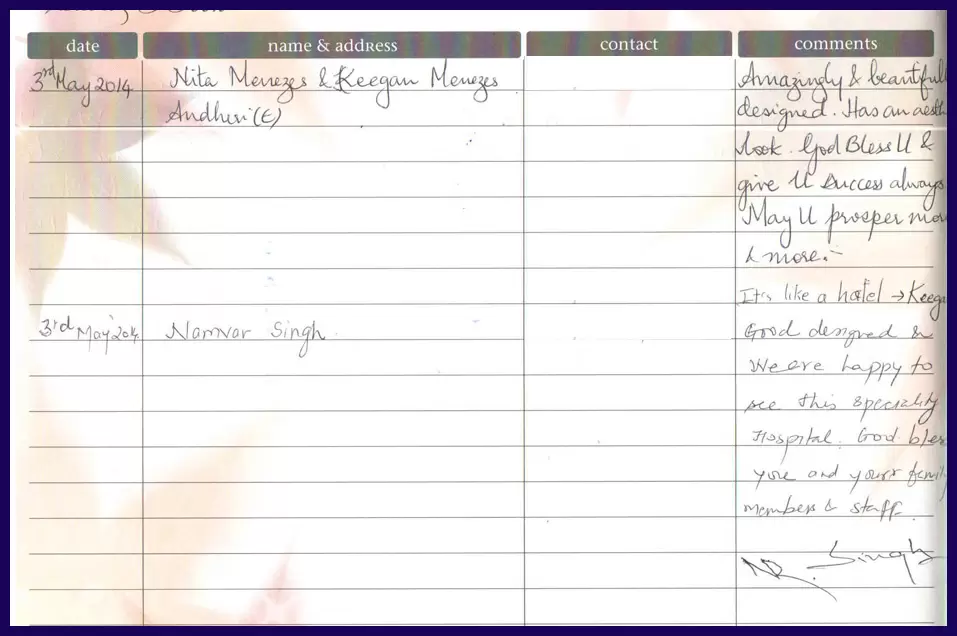 date name & address contact comments
3rd May 2014 Nita Menezes & Keegan Menezes Amazingly & beautifull
Andheri (E) designed. Has an aesth
look. God Bless U &
give U success always
May U prosper mor
& more.-
It's like a hotel → Keega
3rd May 2014 Namvar Singh Good designed &
We are happy to
see this speciality
Hospital. Good bles
you and your famil
members & staff.
Singh